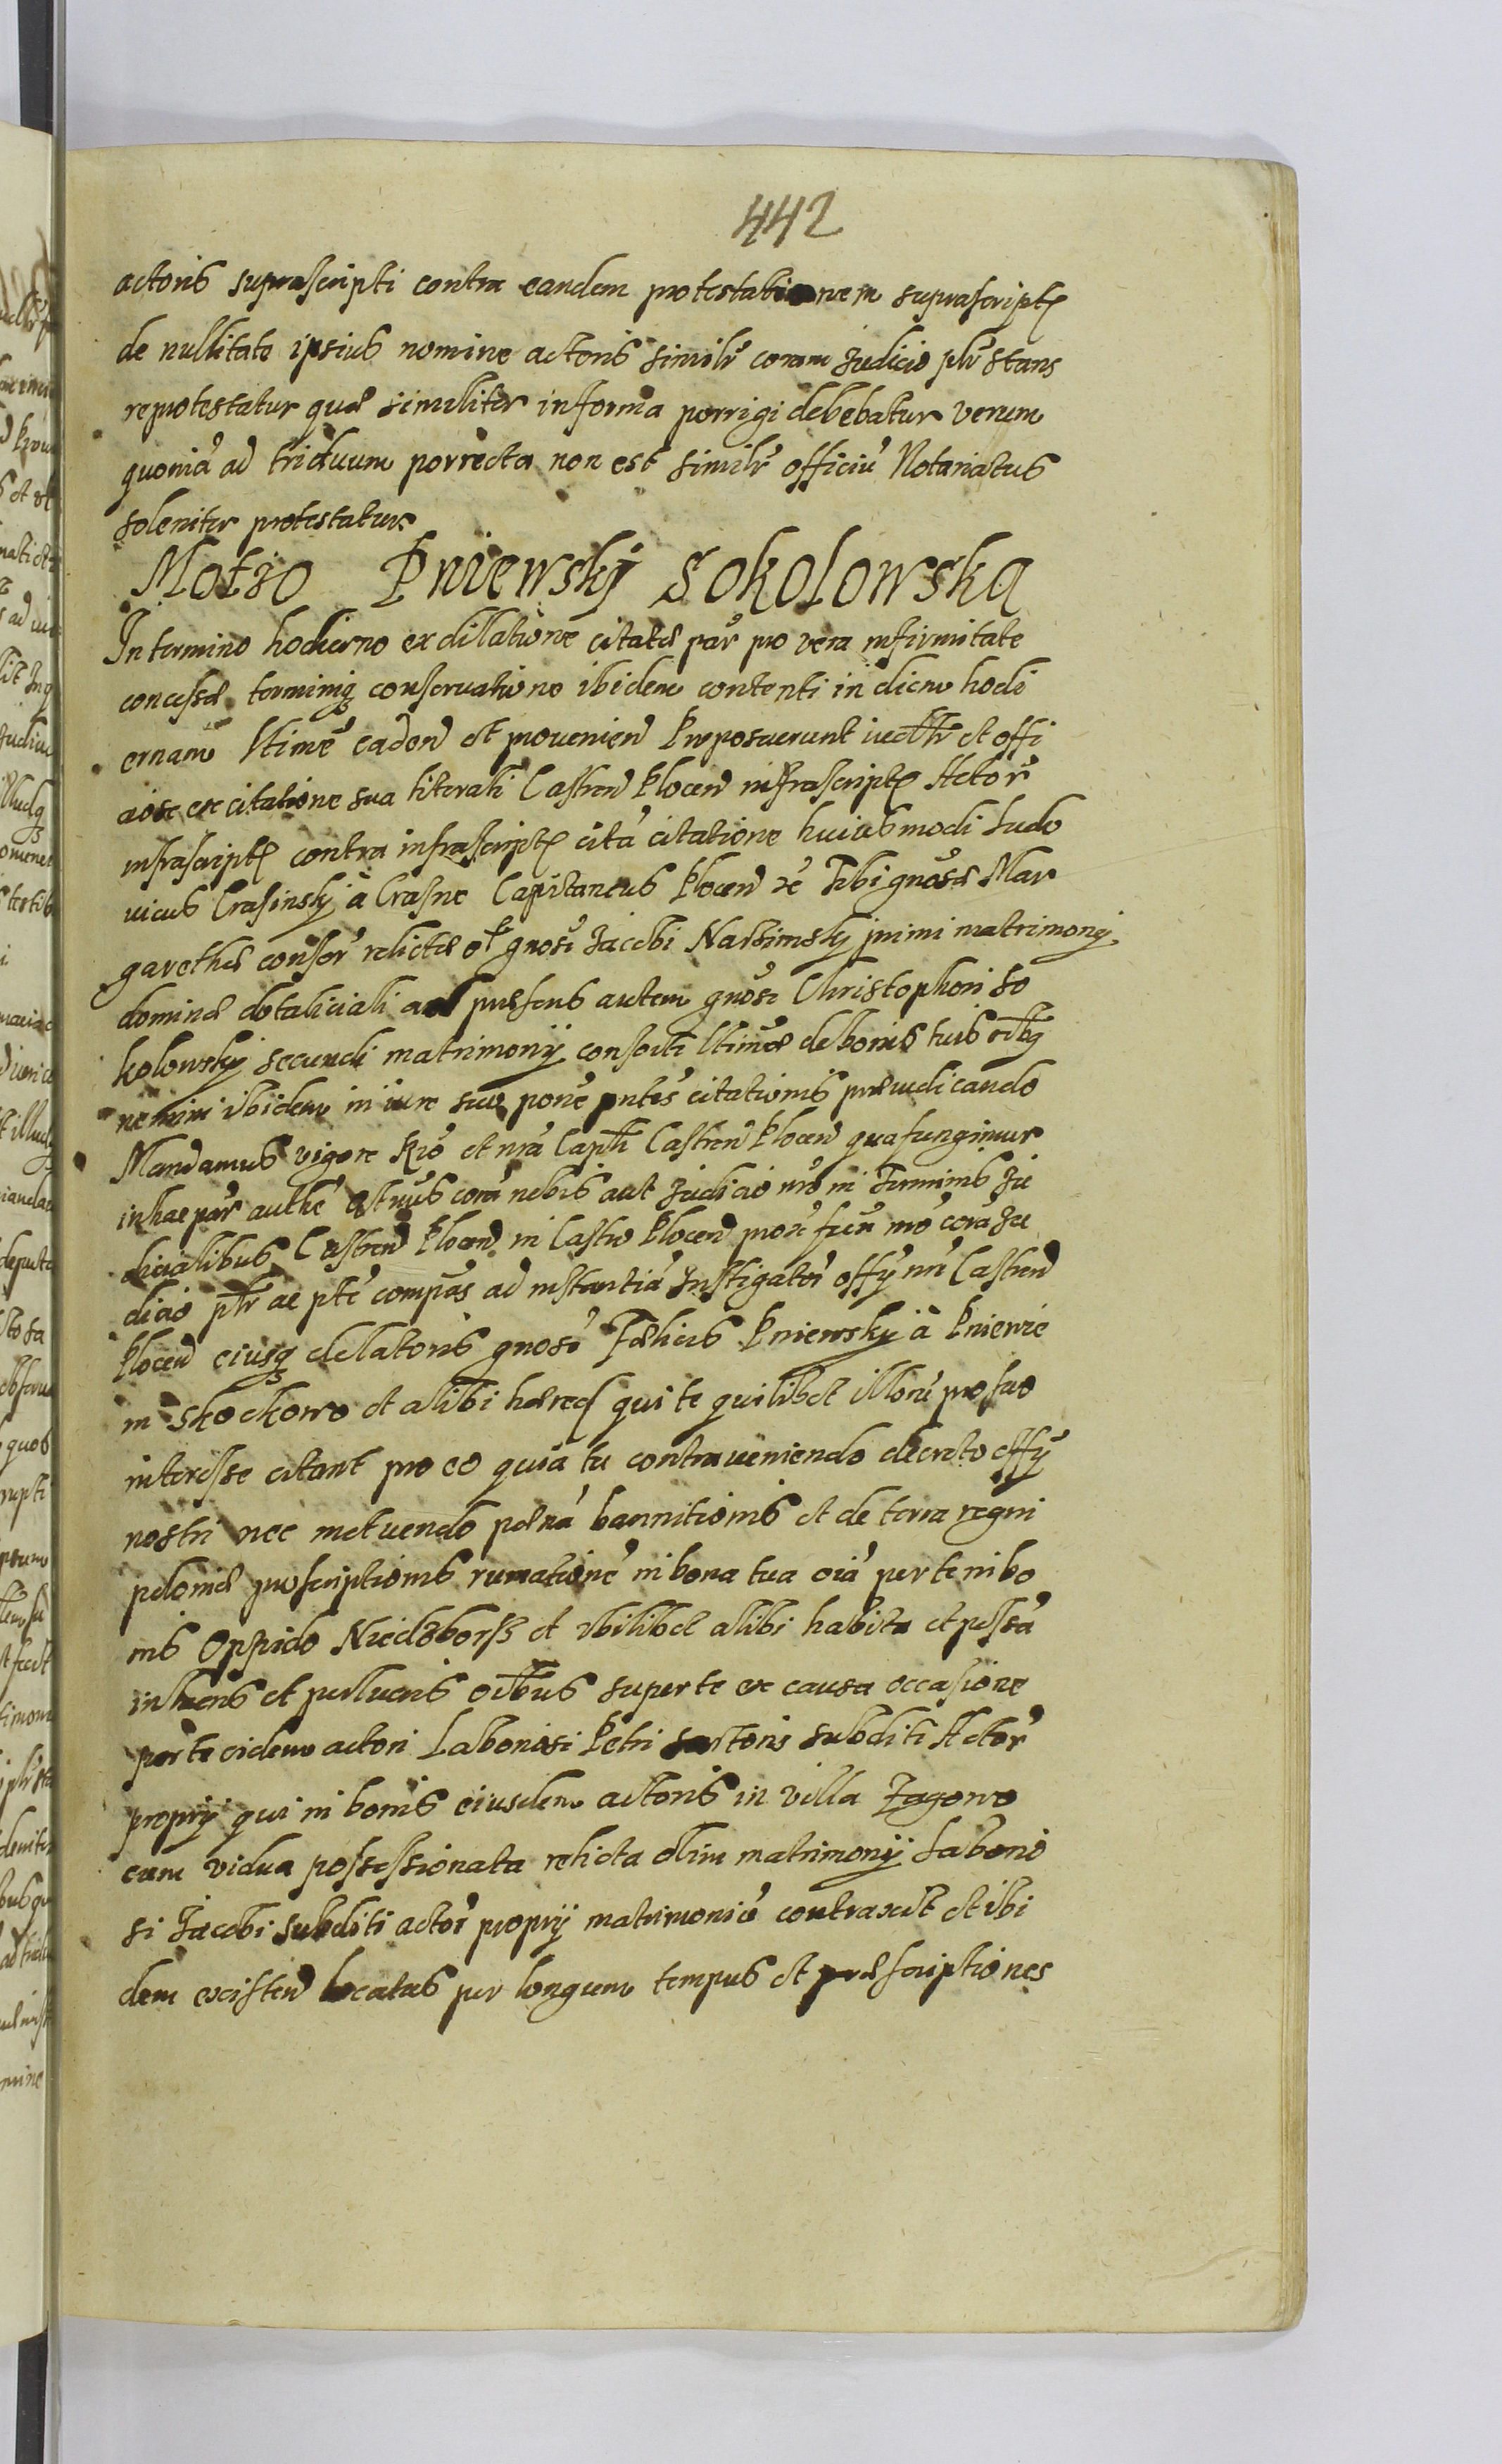 442
actoris suprascripti contra eandem protestationem suprascripta
de nullitate ipsius nomine actoris similr coram Judicio plr stans
reprotestatur quæ similiter in forma porrigi debebatur verum
quoniā ad triduum porrecta non est similr officiū Notariatus
soleniter protestatur
Motio Pniewskÿ Sokolowska
In termino hodierno ex dillatione citatæ par pro vera infirmitate
concessæ terminiqz conseruatione ibidem contenti in diem hodi
ernam ltime caden et prouenien Proposuerunt iudlr et offi
aiose ex citatione sua literali Castren Plocen infrascripta Actor
infrascripta contra infrascripta cita citatione huiusmodi Ludo
uicus Crasinskÿ à Crasne Capitaneus Plocen rc Tibi gnosæ Mar
garethæ consor relictæ ol gnosi Jacobi Narzimskÿ primi matrimonÿ
dominæ dotaliciali ad præsens autem gnosi Christophori So
kolowskÿ secundi matrimonÿ consorti ltimæ de bonis tuis oibqz
nemini ibidem in iure suo pone pntis citationis præiudicando
Mandamus vigore Rio et nra Captli Castren Plocen qua fungimur
in hac par authe cora nobis aut Judicio nro in Terminis Ju
dicialibus Castren Plocen in Castro Plocen prox fien mo cora Ju
dicio plr ac pte compas ad instantia Instigator offÿ nri Castren
Plocen eiusqz delatoris gnosi Fælicis Pniewskÿ à Pniewie
in Skockowo et alibi hæred qui te quilibet illoru pro suo
interesse citant pro eo quia tu contraueniendo decreto offÿ
nostri nec metuendo pœna bannitionis et de terra regni
poloniæ proscriptionis in bona tua oia per te in bo
nis Oppido Niedzborz et vbilibet alibi habita et possa
inhæris et perlucris oibus super te ex causa occasione
per te eidem actori Laboriosi Petri sartoris subditi Actor
proprÿ qui in bonis eiusdem actoris in villa Zagowo
cum vidua possessionata relicta olim matrimonÿ Laborio
si Jacobi subditi actor proprÿ matrimoniu contraxit et ibi
dem existen locatas per longum tempus et præscriptiones